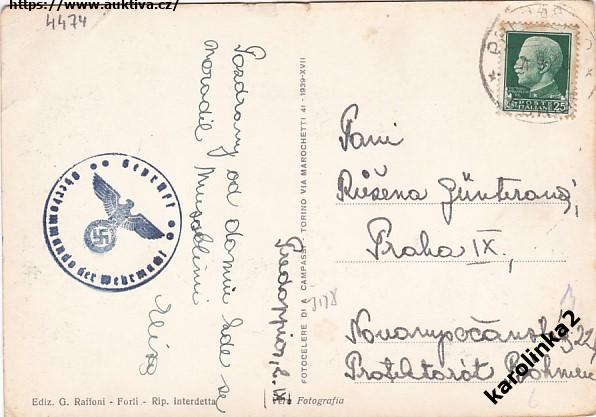 https://www.auktiva.cz/
4474
Pozdravy od domu kde se
narodil Mussolini
Predappio,
Geprüft
Oberkommando der Wehrmacht
FOTOCELERE DI A. CAMPASSI TORINO VIA MAROCHETTI 41 - 1939-XVII
Vera Fotografia
Ediz. G. Raffoni - Forlì - Rip. interdetta
POSTE
ITALIANE
25
Paní
Růžena Günterová,
Praha IX.,
Protektorát Böhmen
3178
karolinka2